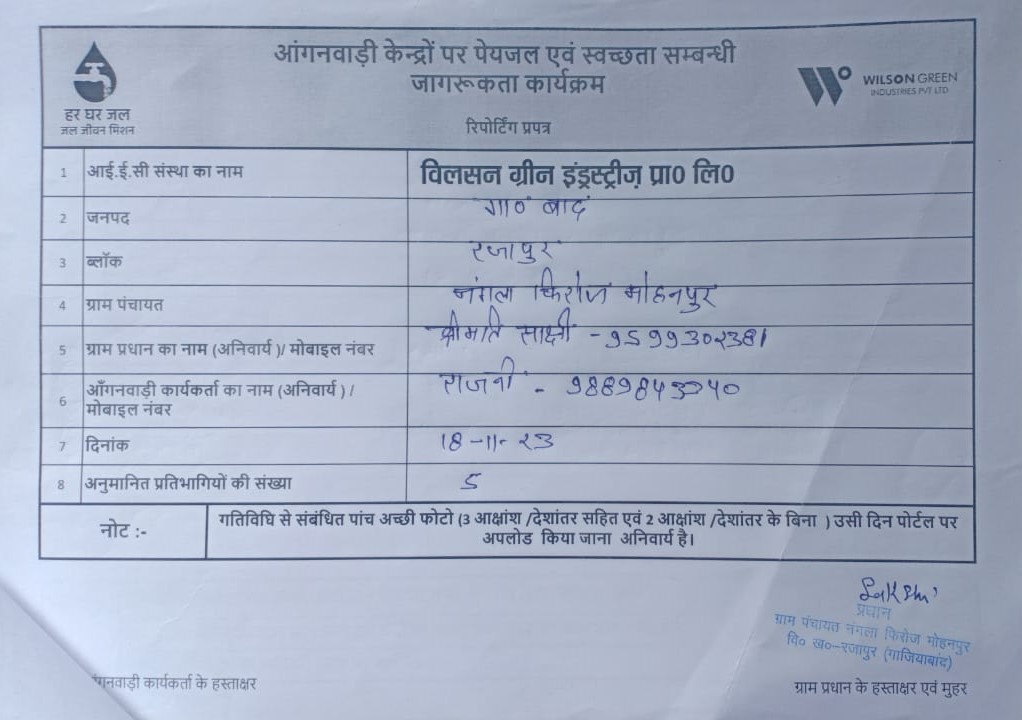 आंगनवाड़ी केन्द्रों पर पेयजल एवं स्वच्छता सम्बन्धी
जागरूकता कार्यक्रम
हर घर जल
जल जीवन मिशन
WILSON GREEN
INDUSTRIES PVT LTD
रिपोर्टिंग प्रपत्र
1 आई.ई.सी संस्था का नाम विलसन ग्रीन इंड्रस्ट्रीज़ प्रा0 लि0
2 जनपद गा0 बाद
3 ब्लॉक रजापुर
4 ग्राम पंचायत नंगला फिरोज मोहनपुर
5 ग्राम प्रधान का नाम (अनिवार्य )/ मोबाइल नंबर श्रीमति साक्षी - 9599302381
6 आँगनवाड़ी कार्यकर्ता का नाम (अनिवार्य ) /
मोबाइल नंबर
राजनी -
7 दिनांक 18-11-23
8 अनुमानित प्रतिभागियों की संख्या 5
नोट :- गतिविधि से संबंधित पांच अच्छी फोटो (3 आक्षांश /देशांतर सहित एवं 2 आक्षांश /देशांतर के बिना ) उसी दिन पोर्टल पर
अपलोड किया जाना अनिवार्य है।
Sakshi
प्रधान
ग्राम पंचायत नंगला फिरोज मोहनपुर
वि० ख०-रजापुर (गाजियाबाद)
गनवाड़ी कार्यकर्ता के हस्ताक्षर
ग्राम प्रधान के हस्ताक्षर एवं मुहर